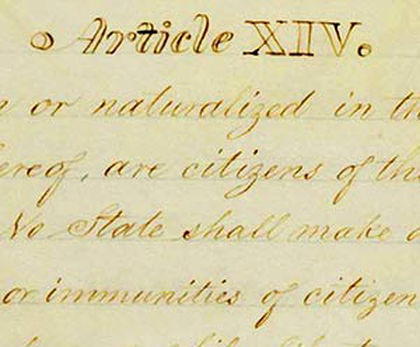 Article XIV.
or naturalized in
are citizens of
No State shall make
or immunities of citizen